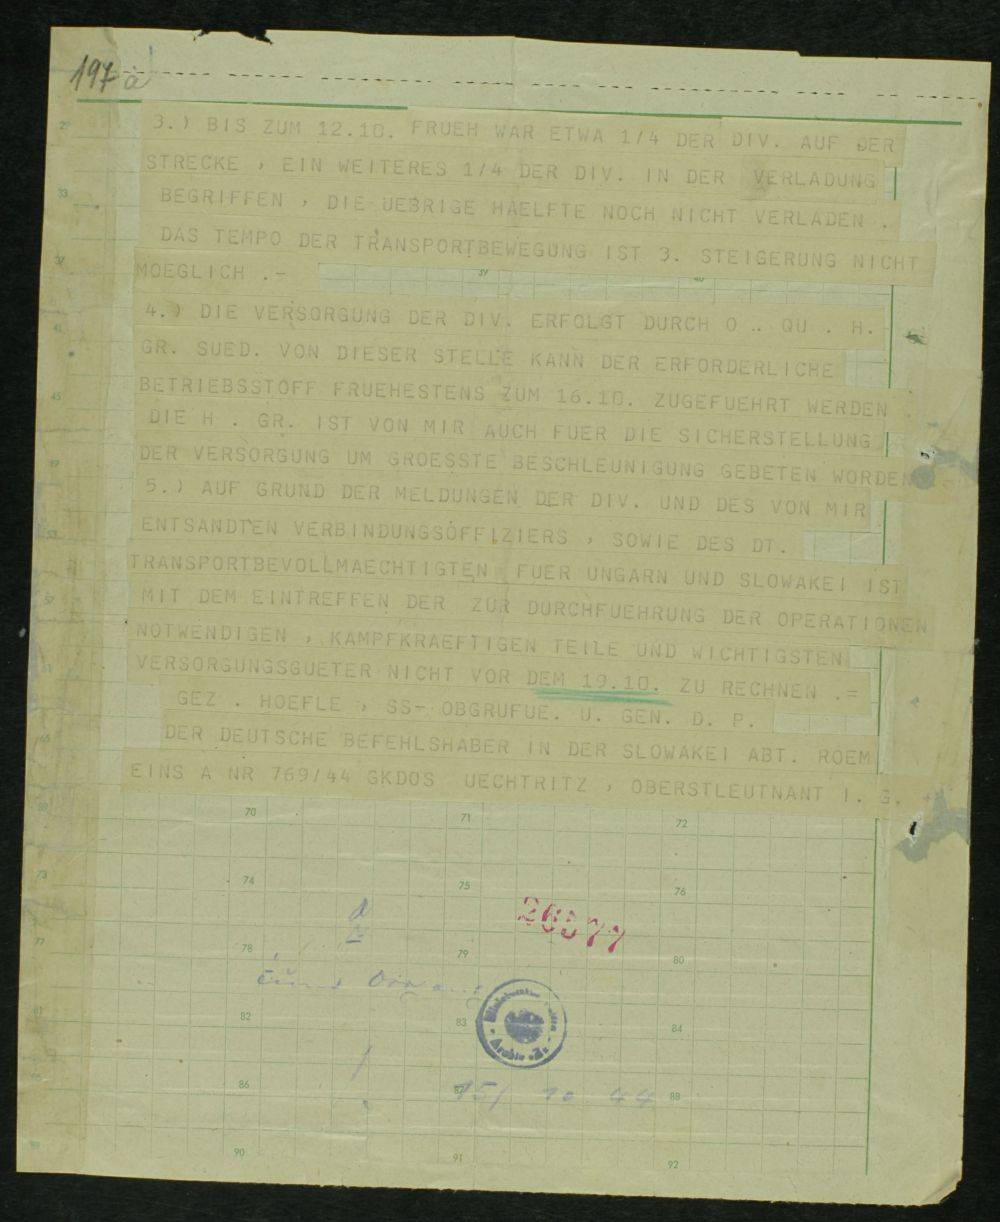 197a
3.) BIS ZUM 12.10. FRUEH WAR ETWA 1/4 DER DIV. AUF DER
STRECKE , EIN WEITERES 1/4 DER DIV. IN DER VERLADUNG
BEGRIFFEN , DIE UEBRIGE HAELFTE NOCH NICHT VERLADEN .
DAS TEMPO DER TRANSPORTBEWEGUNG IST 3. STEIGERUNG NICHT
MOEGLICH .-
39 40
4.) DIE VERSORGUNG DER DIV. ERFOLGT DURCH O .. QU . H.
GR. SUED. VON DIESER STELLE KANN DER ERFORDERLICHE
BETRIEBSSTOFF FRUEHESTENS ZUM 16.10. ZUGEFUEHRT WERDEN .
DIE H . GR. IST VON MIR AUCH FUER DIE SICHERSTELLUNG
DER VERSORGUNG UM GROESSTE BESCHLEUNIGUNG GEBETEN WORDEN
5.) AUF GRUND DER MELDUNGEN DER DIV. UND DES VON MIR
ENTSANDTEN VERBINDUNGSOFFIZIERS , SOWIE DES DT.
TRANSPORTBEVOLLMAECHTIGTEN FUER UNGARN UND SLOWAKEI IST
MIT DEM EINTREFFEN DER ZUR DURCHFUEHRUNG DER OPERATIONEN
NOTWENDIGEN , KAMPFKRAEFTIGEN TEILE UND WICHTIGSTEN
VERSORGUNGSGUETER NICHT VOR DEM 19.10. ZU RECHNEN .=
GEZ . HOEFLE , SS- OBGRUFUE. U. GEN. D. P.
DER DEUTSCHE BEFEHLSHABER IN DER SLOWAKEI ABT. ROEM
EINS A NR 769/44 GKDOS UECHTRITZ , OBERSTLEUTNANT I. G.
70 71 72
73 74 75 76
26577
77 78 79 80
81 82 83 84
86 87 88
15/ 10 44
90 91 92